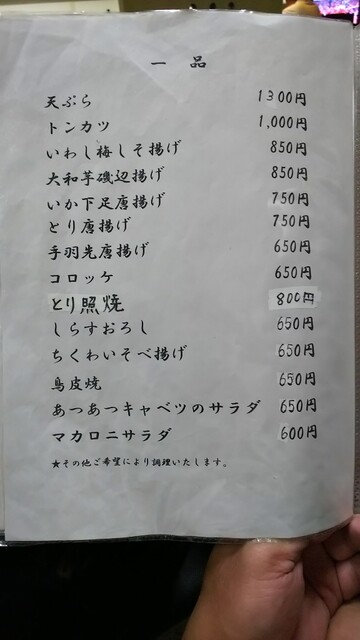 一品
天ぷら 1300円
トンカツ 1,000円
いわし梅しそ揚げ 850円
大和芋磯辺揚げ 850円
いか下足唐揚げ 750円
とり唐揚げ 750円
手羽先唐揚げ 650円
コロッケ 650円
とり照焼 800円
しらすおろし 650円
ちくわいそべ揚げ 650円
鳥皮焼 650円
あつあつキャベツのサラダ 650円
マカロニサラダ 600円
★その他ご希望により調理いたします。